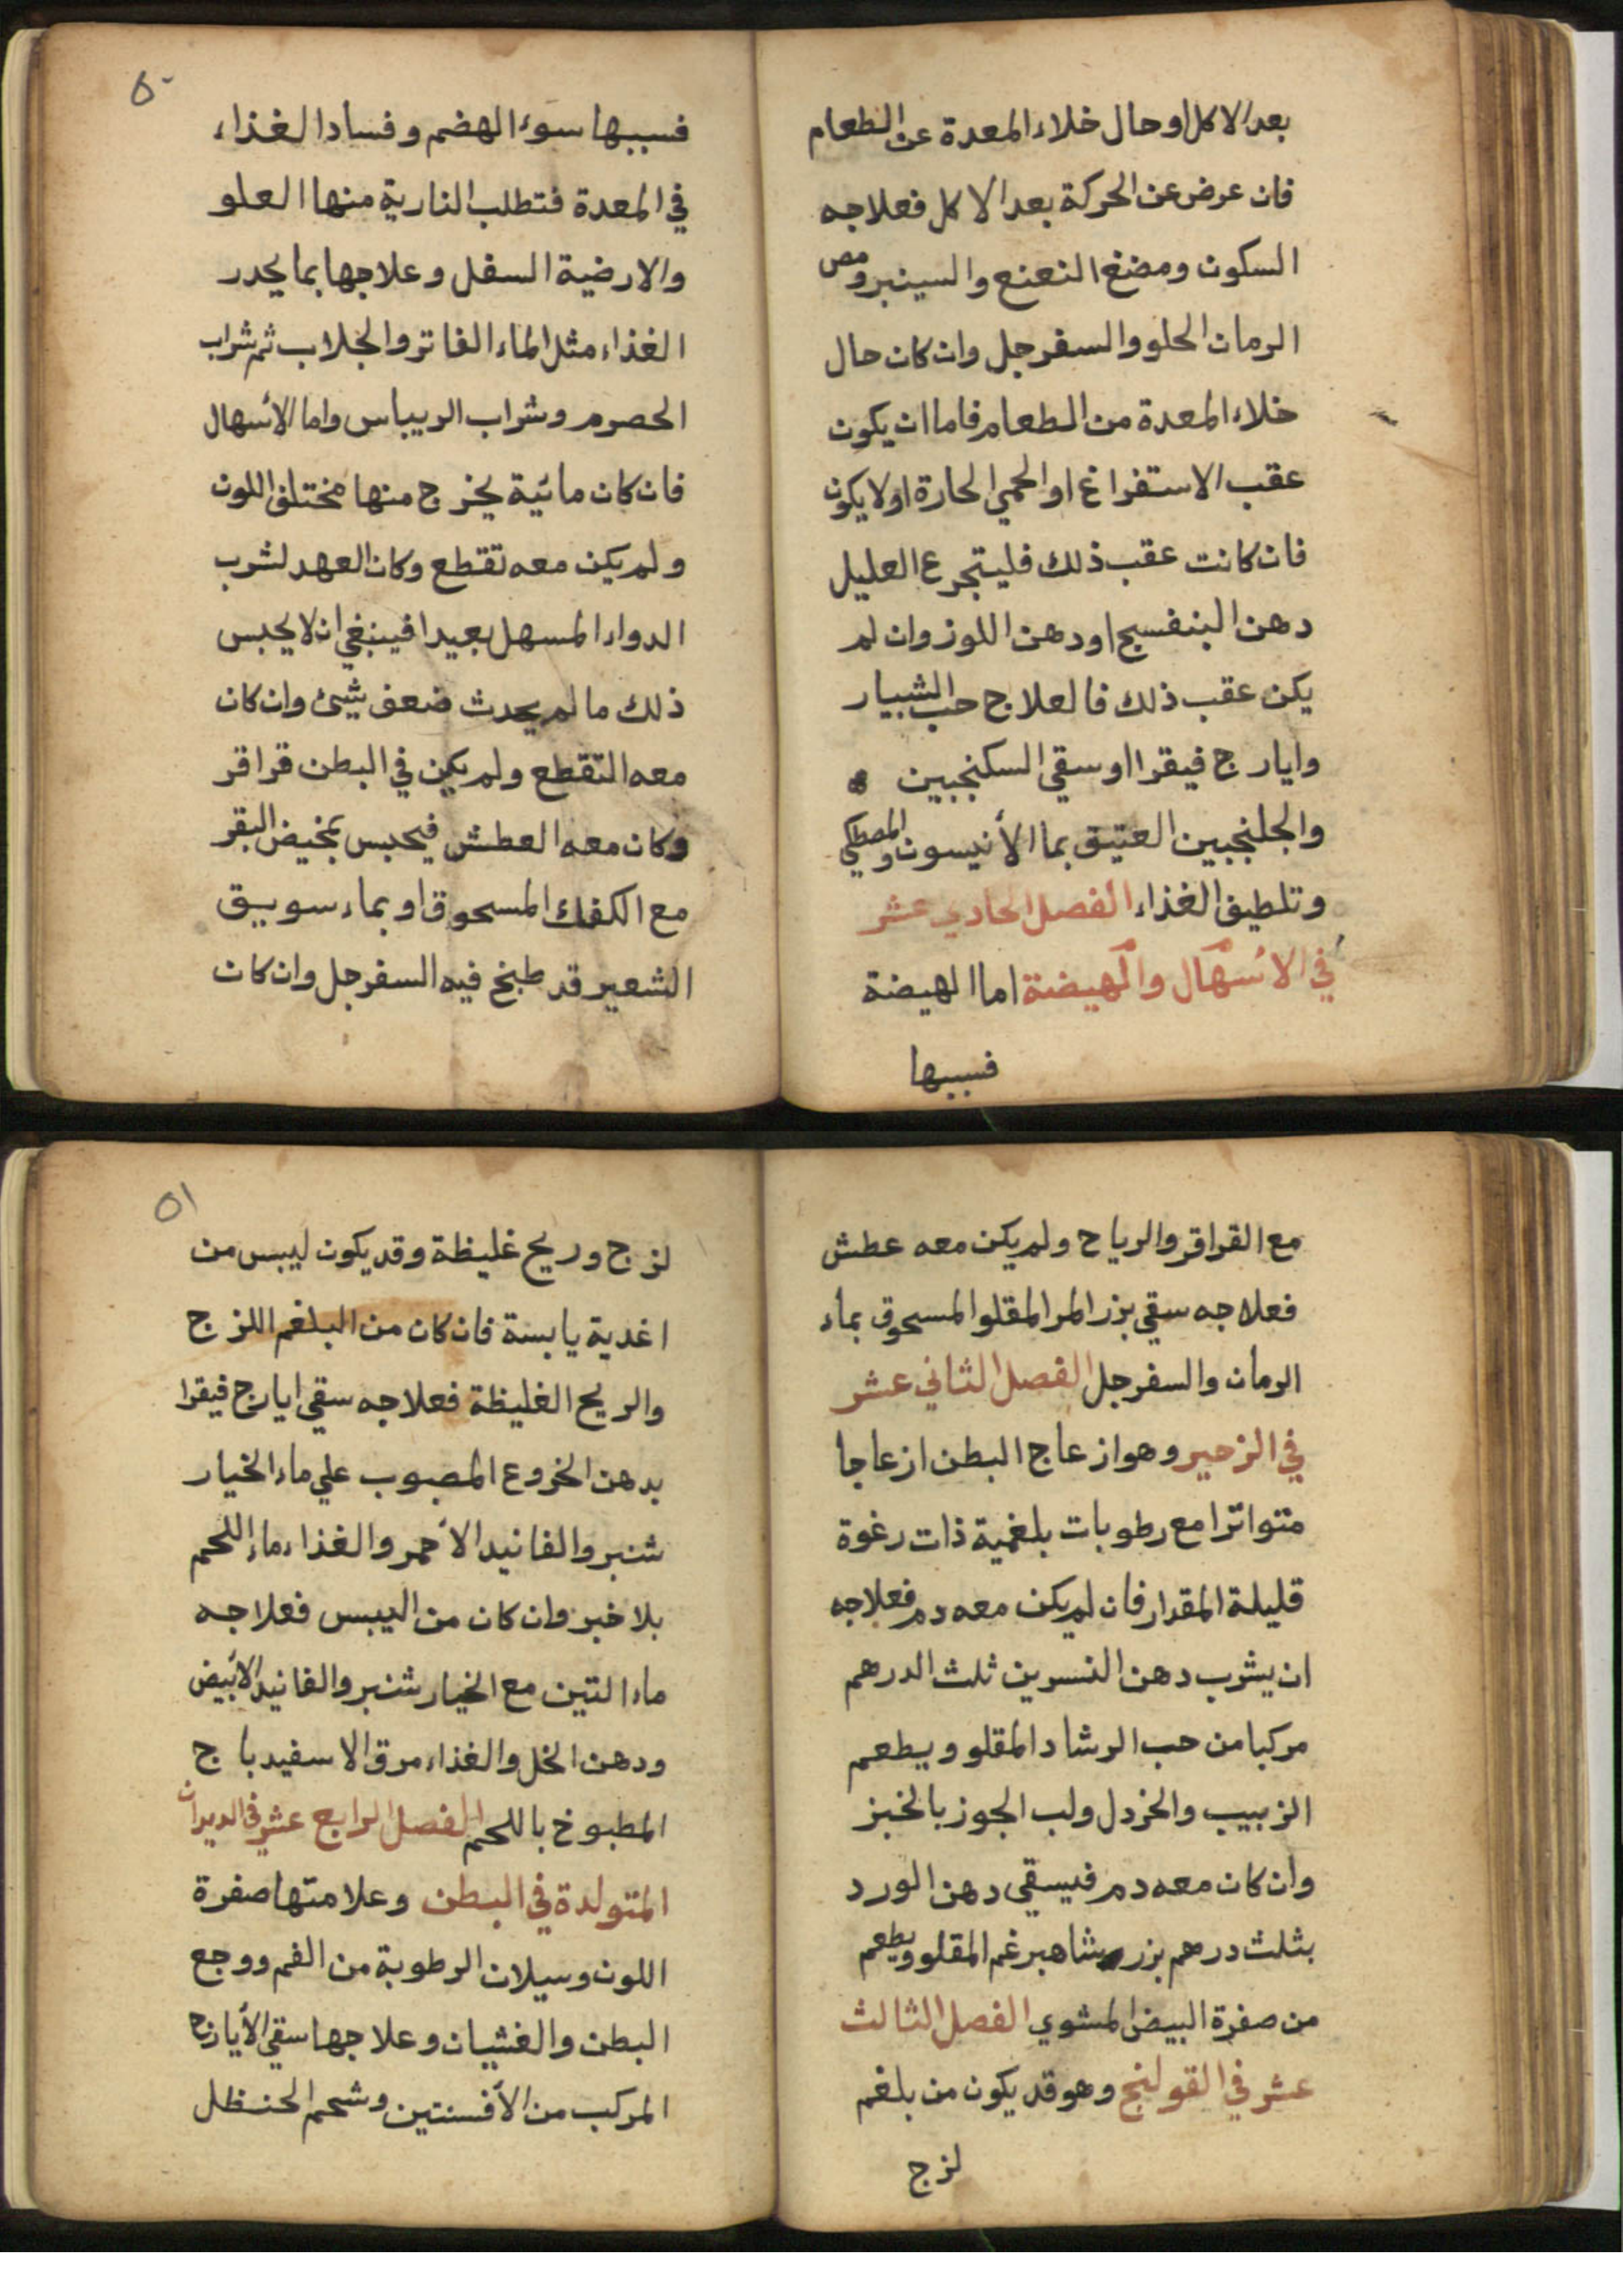 بعد الاكل او حال خلاء المعدة عن الطعام
فان عرض عن الحركة بعد الاكل فعلاجه
السكون ومضغ النعنع والسينبر ومص
الرمان الحلو والسفرجل وان كان حال
خلاء المعدة من الطعام فاما ان يكون
عقب الاستفراغ او الحمي الحارة او لا يكون
فان كانت عقب ذلك فليتجرع العليل
دهن البنفسج او دهن اللوز وان لم
يكن عقب ذلك فالعلاج حب الشبيار
وايارج فيقرا او سقي السكنجبين ه
والجلنجبين العتيق بما الأنيسون والمصطكي
وتلطيف الغذاء الفصل الحادي عشر
في الاسهال والهيضة اما الهيضة
فسببها
٥٠
فسببها سوء الهضم وفساد الغذاء
في المعدة فتطلب النارية منها العلو
والارضية السفل وعلاجها بما يحدر
الغذاء مثل الماء الفاتر والجلاب ثم شراب
الحصرم وشراب الريباس واما الأسهال
فان كان مائية يخرج منها مختلف اللون
ولم يكن معه تقطع وكان العهد لشرب
الدواء المسهل بعيدا فينبغي ان لا يحبس
ذلك ما لم يحدث ضعف شيئ وان كان
معه التقطع ولم يكن في البطن قراقر
وكان معه العطش فيحبس بمخيض البقر
مع الكعك المسحوق او بماء سويق
الشعير قد طبخ فيه السفرجل وان كان
مع القراقر والرياح ولم يكن معه عطش
فعلاجه سقي بزر المر المقلو المسحوق بماء
الرمان والسفرجل الفصل الثاني عشر
في الزحير وهو ازعاج البطن ازعاجا
متواترا مع رطوبات بلغمية ذات رغوة
قليلة المقدار فان لم يكن معه دم فعلاجه
ان يشرب دهن النسرين ثلث الدرهم
مركبا من حب الرشاد المقلو ويطعم
الزبيب والخردل ولب الجوز بالخبز
وان كان معه دم فيسقي دهن الورد
بثلث درهم بزر شاهبرغم المقلو ويطعم
من صفرة البيض المشوي الفصل الثالث
عشر في القولنج وهو قد يكون من بلغم
لزج
٥١
لزج وريح غليظة وقد يكون ليبس من
اغدية يابسة فان كان من البلغم اللزج
والريح الغليظة فعلاجه سقي ايارج فيقرا
بدهن الخروع المصبوب علي ماء الخيار
شنبر والفانيد الأحمر والغذاء ماء اللحم
بلا خبز وان كان من اليبس فعلاجه
ماء التين مع الخيار شنبر والفانيد الأبيض
ودهن الخل والغذاء مرق الاسفيدباج
المطبوخ باللحم الفصل الرابع عشر في الديدان
المتولدة في البطن وعلامتها صفرة
اللون وسيلان الرطوبة من الفم ووجع
البطن والغثيان وعلاجها سقي الأيارج
المركب من الأفسنتين وشحم الحنظل